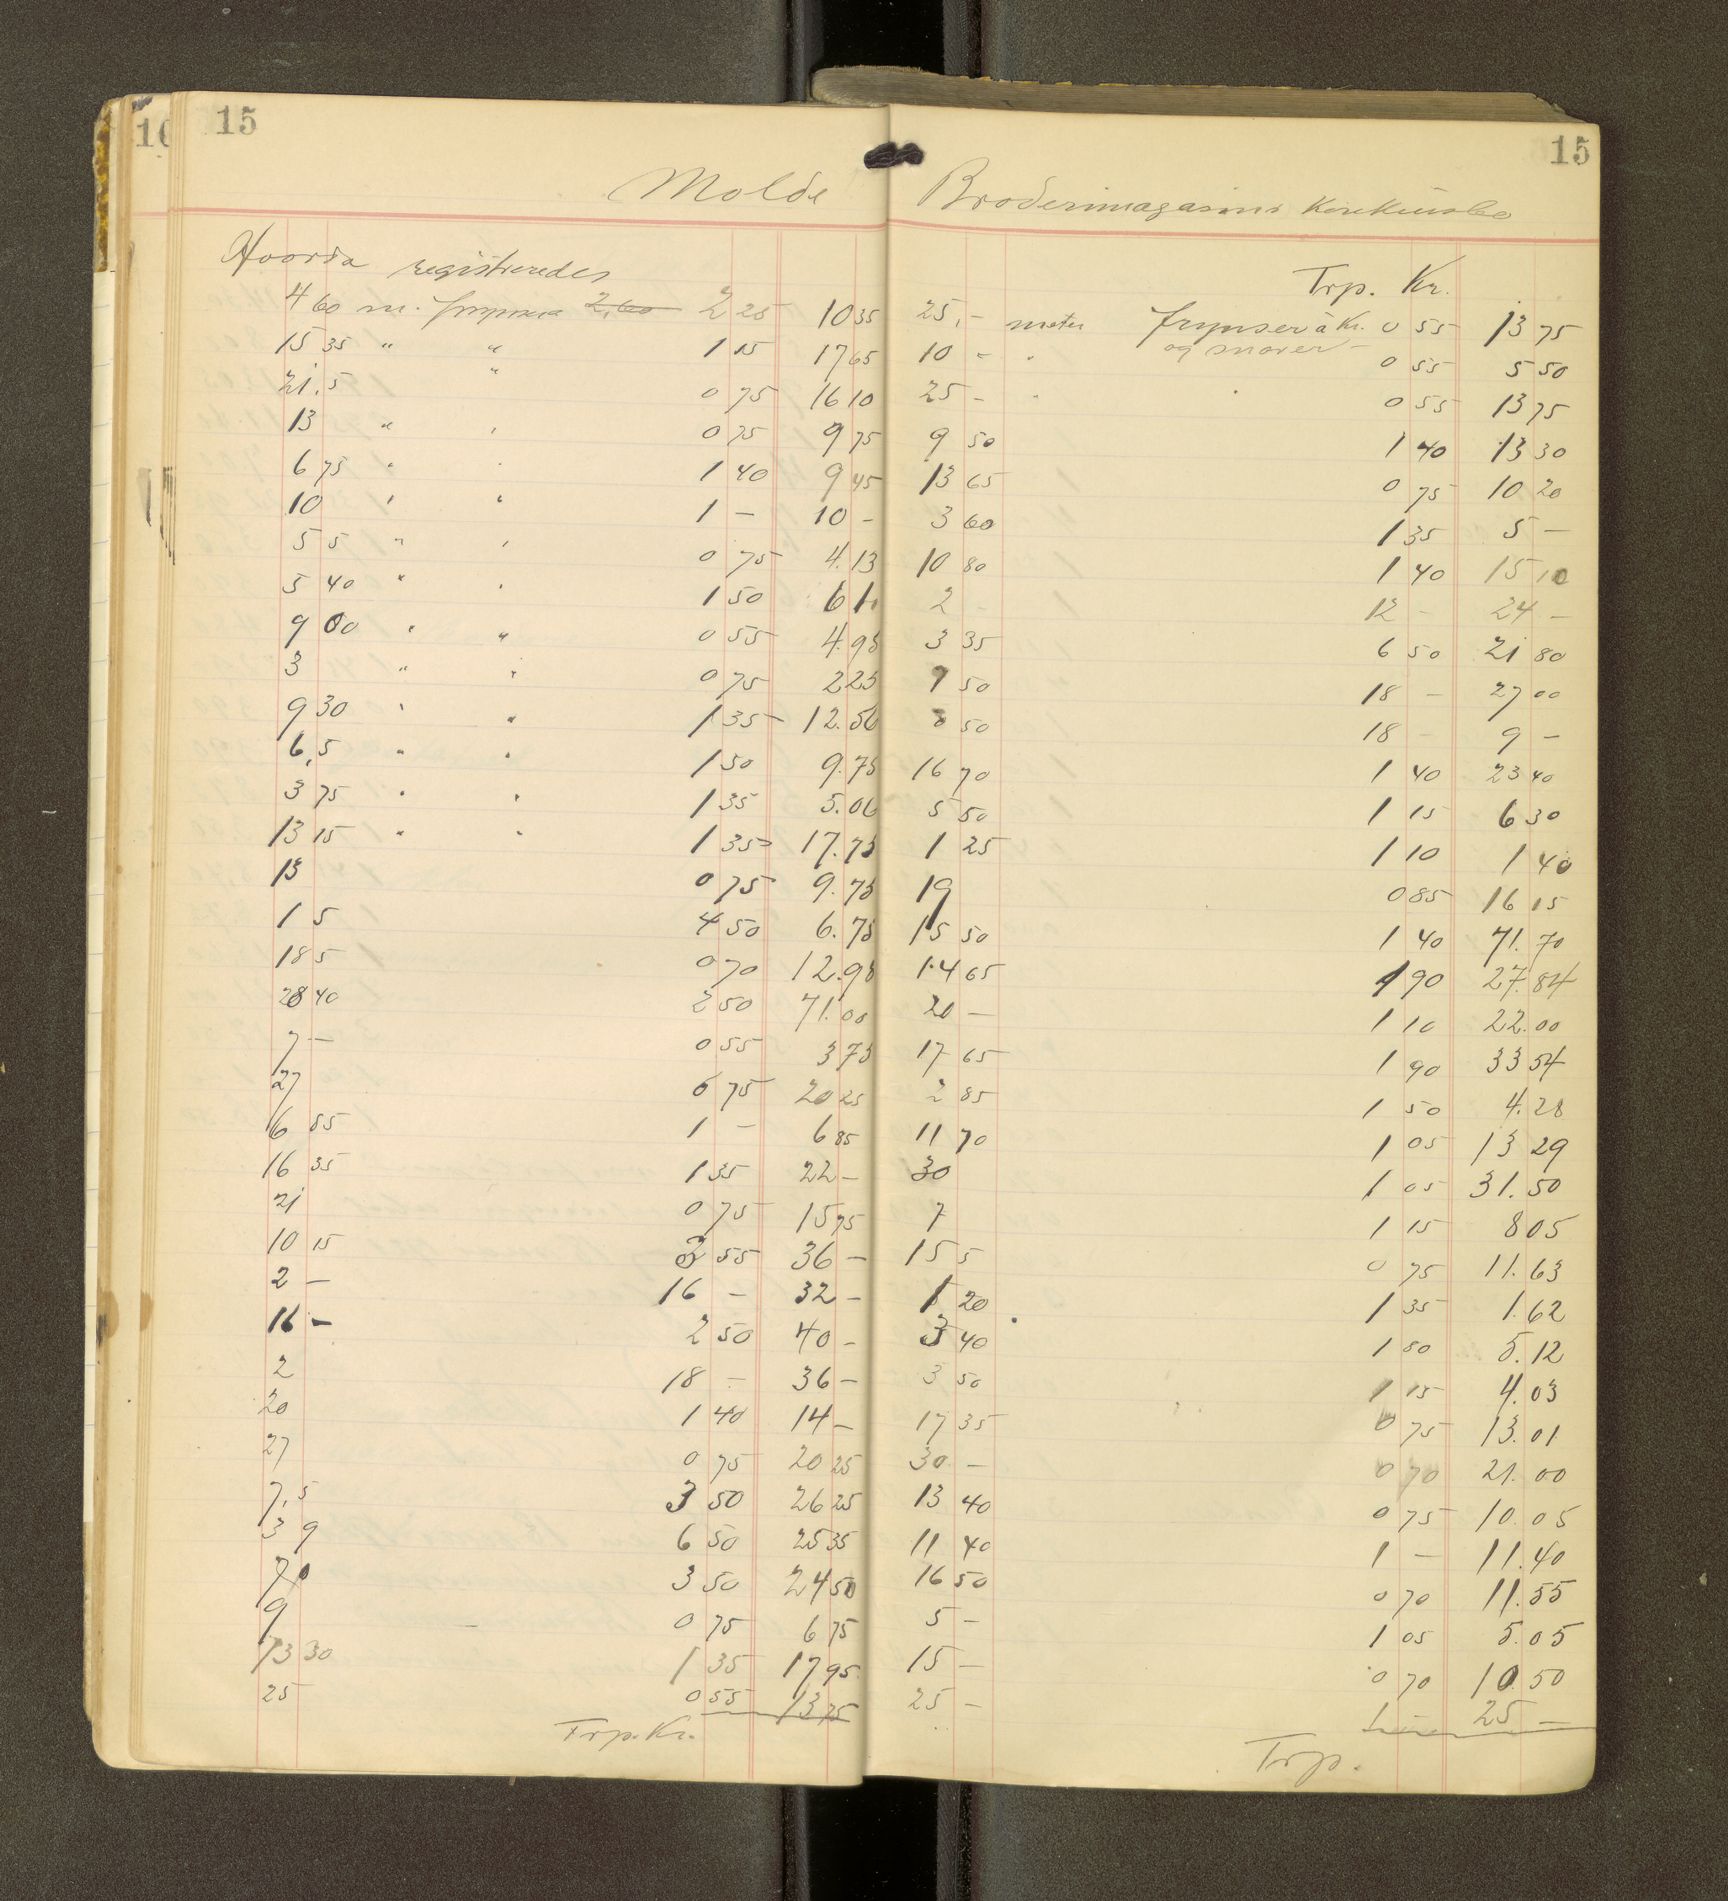 15
Molde
Hvorda registreredes
4 60 m. frynser 2,60 2 25 10 35
15 35 " " 1 15 17 65
21,5 " 0 75 16 10
13 " " 0 75 9 75
6 75 " " 1 40 9 45
10 " " 1 - 10 -
5 5 " " 0 75 4.13
5 40 " " 1 50
9 00 " " 0 55 4.95
3 " " 0 75 2 25
9 30 " " 1 35 12.56
6,5 " " 1 50 9.75
3 75 " " 1 35 5.06
13 15 " " 1 35 17.75
13 0 75 9.75
1 5 4 50 6.75
18 5 0 70 12.95
28 40 2 50 71.00
7 - 0 55 3 75
27 0 75 20 25
6 85 1 - 6 85
16 35 1 35 22 -
21 0 75 15 75
10 15 3 55 36 -
2 - 16 - 32 -
16 - 2 50 40 -
2 18 - 36 -
20 1 40 14 -
27 0 75 20 25
7,5 3 50 26 25
3 9 6 50 25 35
7 3 50 24 50
9 0 75 6 75
13 30 1 35 17 95
25 0 55 13 75
Trp. Kr.
15
Broderimagasins
Trp. Kr.
25,- meter frynser à Kr. 0 55 13 75
og snorer
10 - " 0 55 5 50
25 - " " 0 55 13 75
9 50 1 40 13 30
13 65 0 75 10 20
3 60 1 35 5 -
10 80 1 40 15 10
2 - 12 - 24 -
3 35 6 50 21 80
1 50 18 - 27 00
0 50 18 - 9 -
16 70 1 40 23 40
5 50 1 15 6 30
1 25 1 10 1 40
19 0 85 16 15
15 50 1 40 71.70
14 65 1 90 27.84
20 - 1 10 22.00
17 65 1 90 33 54
2 85 1 50 4.28
11 70 1 05 13 29
30 1 05 31.50
7 1 15 8 05
15 5 0 75 11.63
1 20 1 35 1.62
3 40 1 50 5.12
3 50 1 15 4.03
17 35 0 75 13.01
30 - 0 70 21.00
13 40 0 75 10.05
11 40 1 - 11.40
16 50 0 70 11.55
5 - 1 05 5.05
15 - 0 70 10.50
25 - 25 -
Trp.